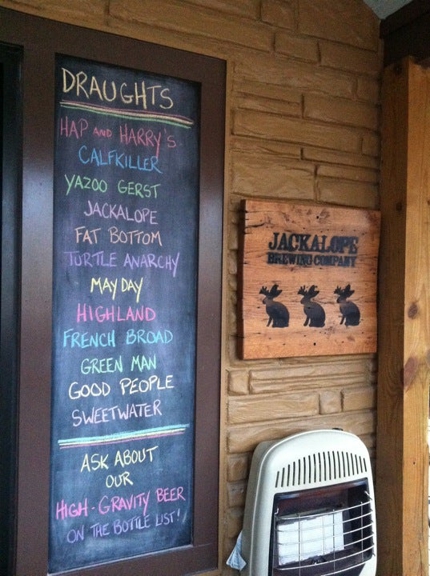 DRAUGHTS
HAP AND HARRY'S
CALFKILLER
YAZOO GERST
JACKALOPE
FAT BOTTOM
TURTLE ANARCHY
MAY DAY
HIGHLAND
FRENCH BROAD
GREEN MAN
GOOD PEOPLE
SWEETWATER
ASK ABOUT
OUR
HIGH-GRAVITY BEER
ON THE BOTTLE LIST!
JACKALOPE
BREWING COMPANY